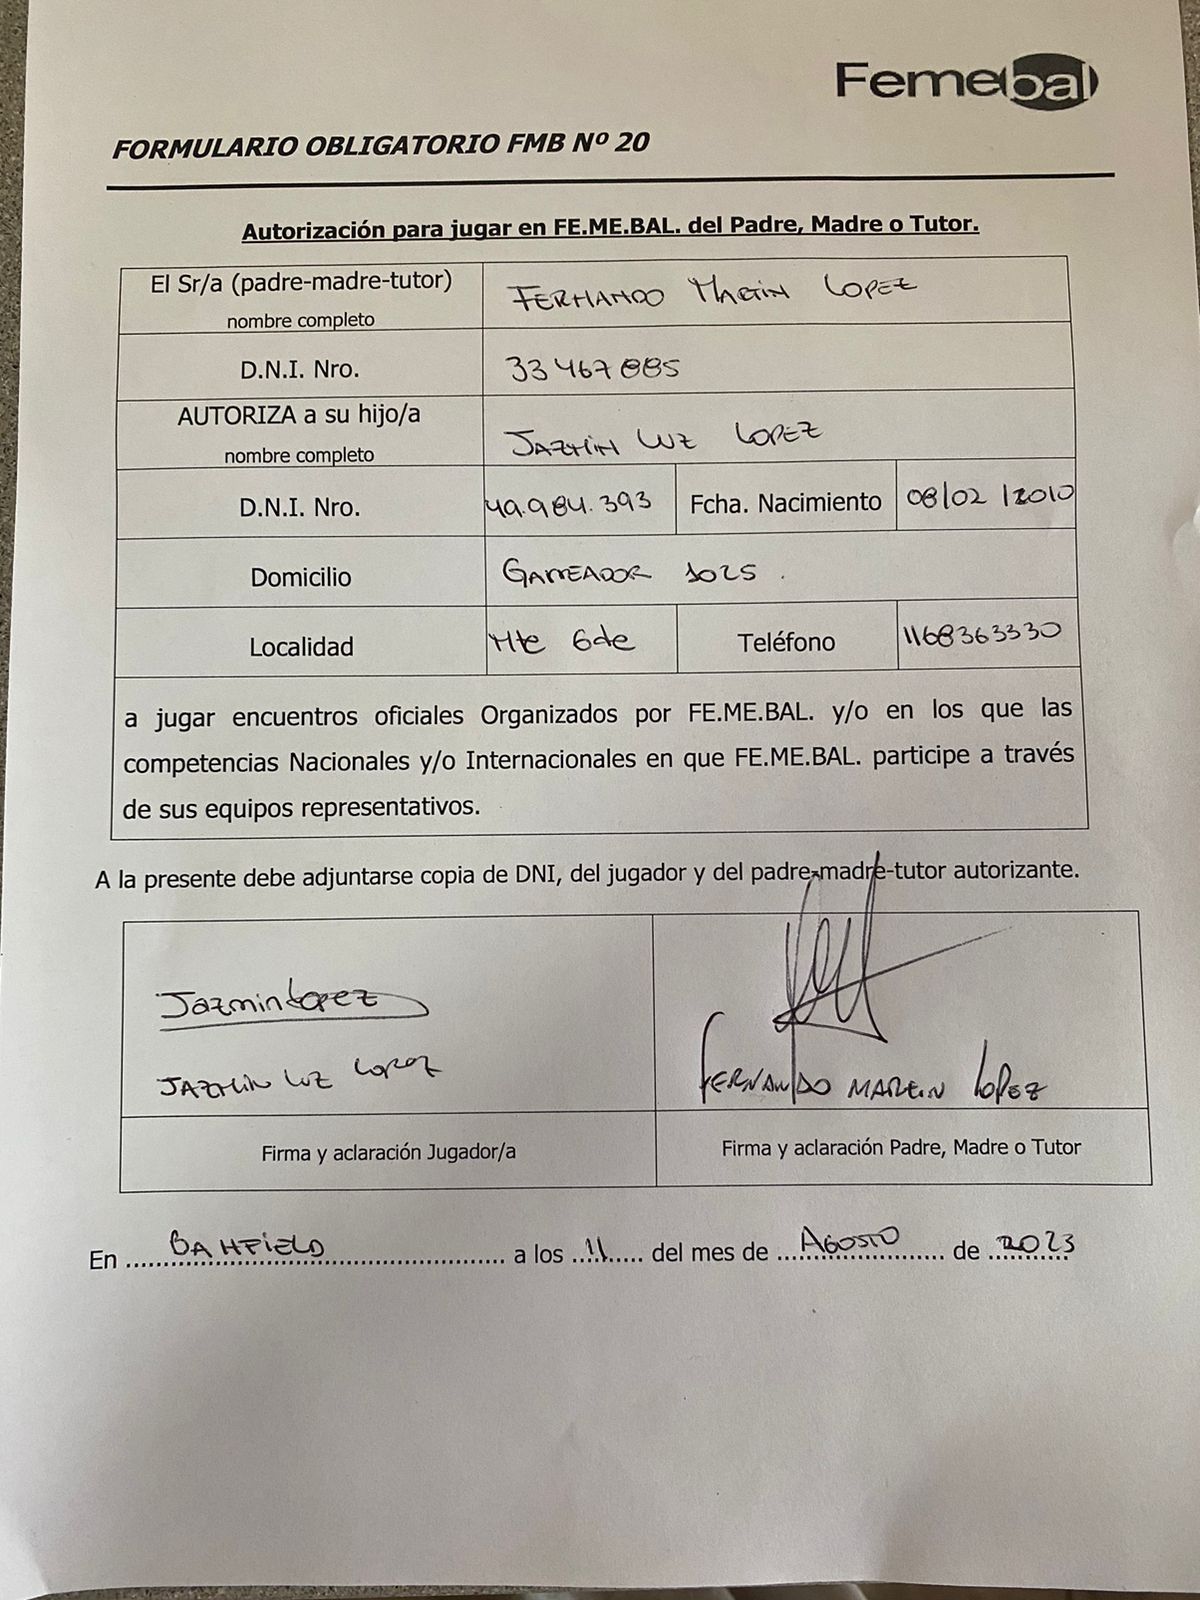 Femebal
FORMULARIO OBLIGATORIO FMB Nº 20
Autorización para jugar en FE.ME.BAL. del Padre, Madre o Tutor.
El Sr/a (padre-madre-tutor) FERNANDO MARTIN LOPEZ
nombre completo
D.N.I. Nro. 33467885
AUTORIZA a su hijo/a JAZMIN LUZ LOPEZ
nombre completo
D.N.I. Nro. 49.984.393 Fcha. Nacimiento 08/02/2010
Domicilio 1025.
Localidad Mte Gde Teléfono 1168363330
a jugar encuentros oficiales Organizados por FE.ME.BAL. y/o en los que las
competencias Nacionales y/o Internacionales en que FE.ME.BAL. participe a través
de sus equipos representativos.
A la presente debe adjuntarse copia de DNI, del jugador y del padre-madre-tutor autorizante.
Jazmin Lopez
JAZMIN LUZ LOPEZ FERNANDO MARTIN LOPEZ
Firma y aclaración Jugador/a Firma y aclaración Padre, Madre o Tutor
En BANFIELD a los 11 del mes de AGOSTO de 2023